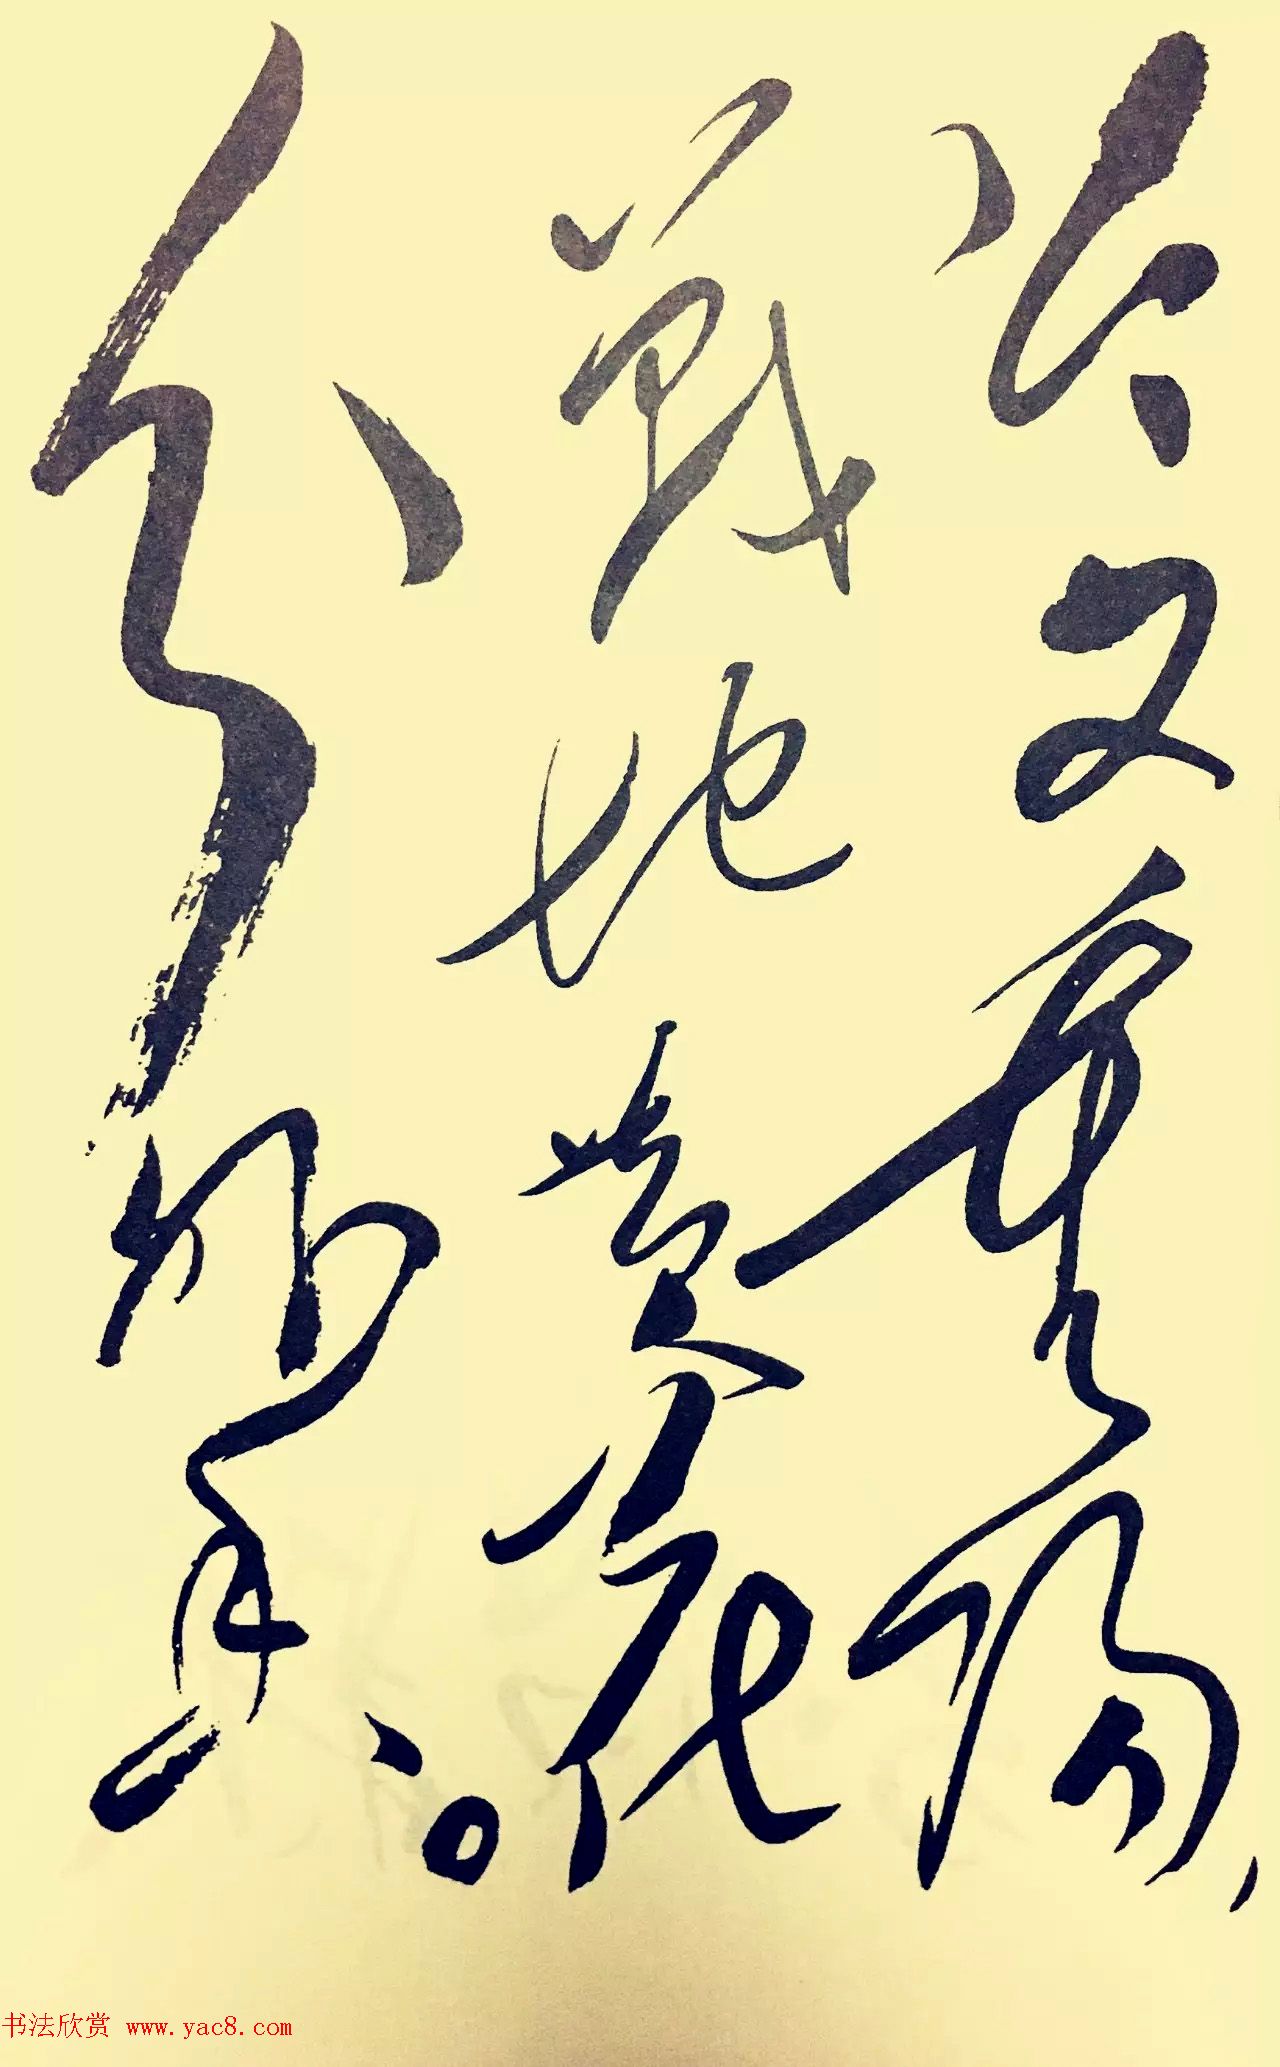 今又重陽，
戰地黄花
分外香。
书法欣赏 www.yac8.com